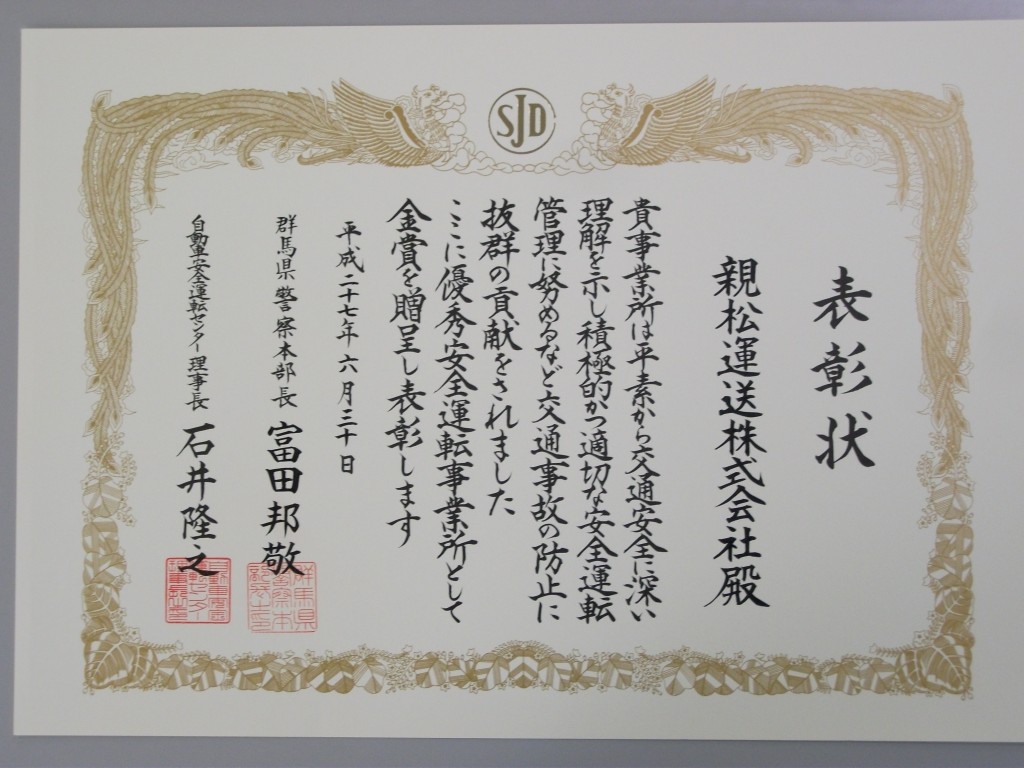 SJD
表彰状
親松運送株式会社殿
貴事業所は平素から交通安全に深い
理解を示し積極的かつ適切な安全運転
管理に努めるなど交通事故の防止に
抜群の貢献をされました
ここに優秀安全運転事業所として
金賞を贈呈し表彰します
平成二十七年六月三十日
群馬県警察本部長 富田邦敬
自動車安全運転センター理事長 石井隆之